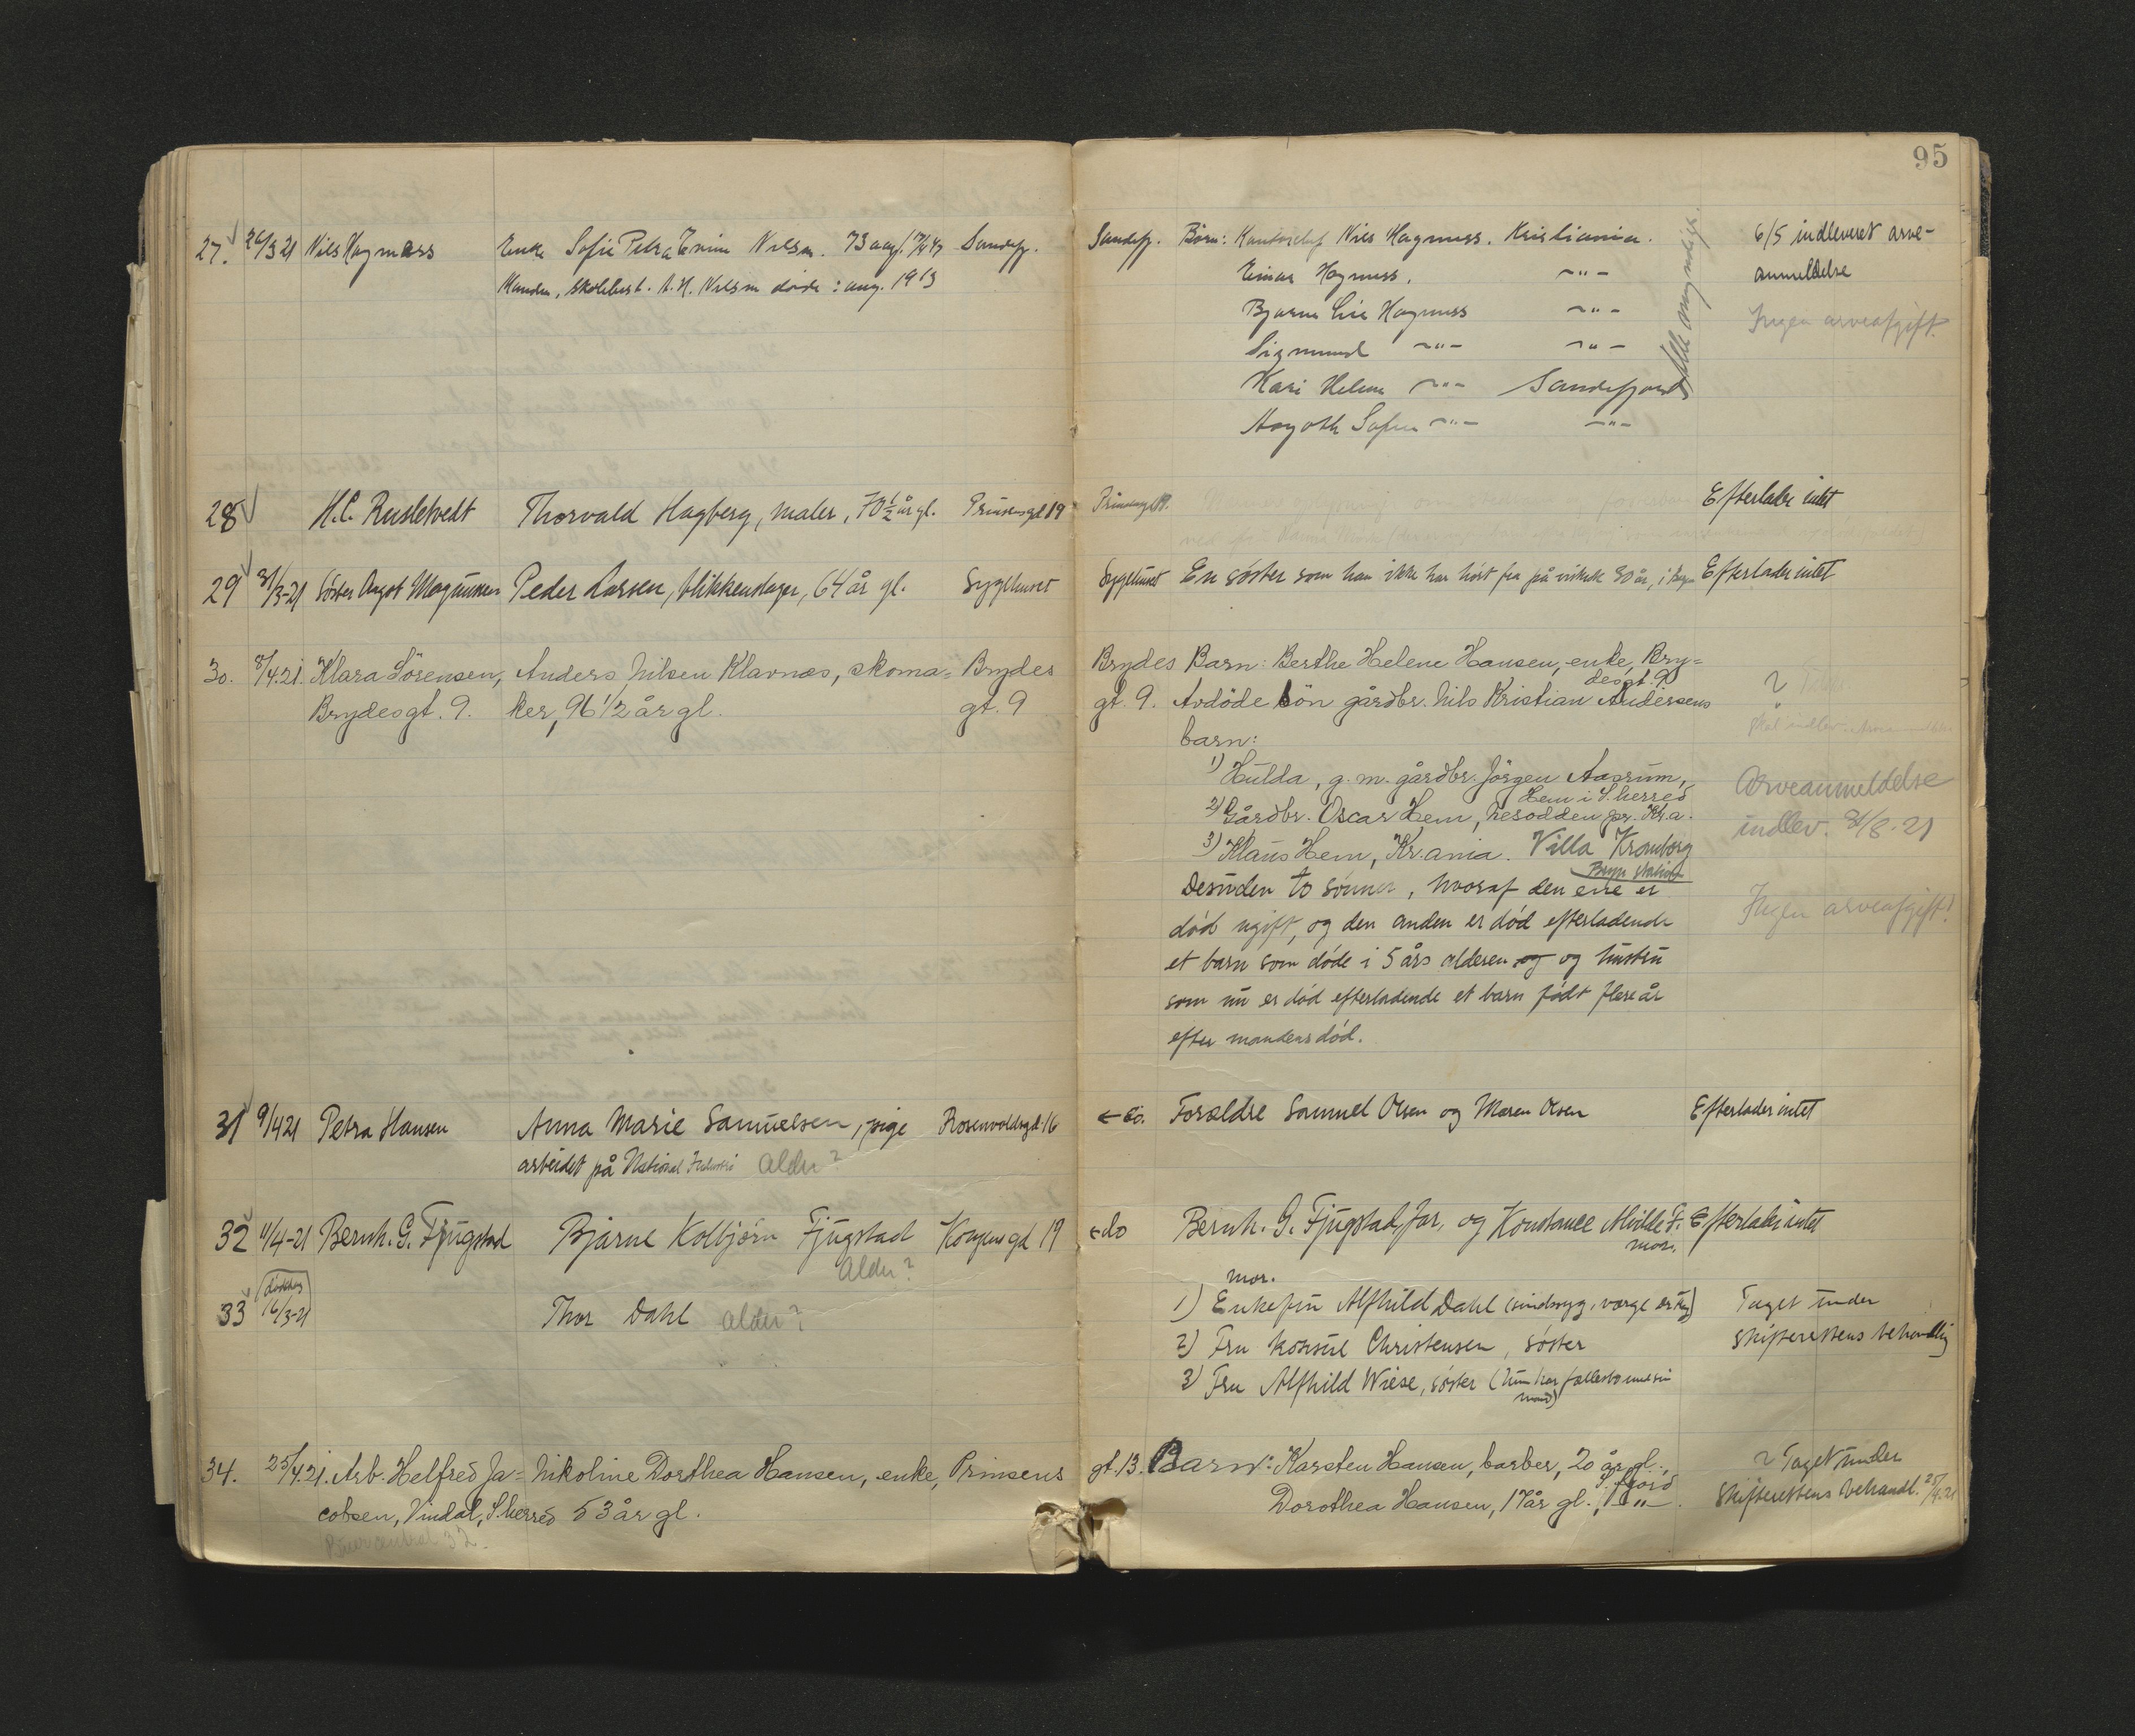 95
27. 26/3 21 Nils Hagmess Enke Sofie Petra Enime Nilsen. 73 aar f. Sandefj. Sandefj. Børn: Kontorchef Nils Hagness. Kristiania. 6/5 indleveret arve-
Manden, skolebest. A. H. Nilsen døde: aug. 1913 Einar Hagness, -"- anmeldelse
Bjarne Hagness -"- Ingen arveafgift.
Sigmund -"- -"-
Kari Helene -"- Sandefjord
Aagoth Sofie -"- -"-
Alle myndige.
28 H.C. Rusletvedt Thorvald Hagberg, maler, 70 1/2 år gl. Prinsensgd 19 Prinsensgd 19. Efterlader intet
29 31/3-21 Søster Aagot Magnussen Peder Larsen, blikkenslager, 64 år gl. Sygehuset Sygehuset En søster som han ikke har hørt fra på 30 år, i Efterlader intet
30. 8/4.21. Klara Sörensen, Anders Nilsen Klavnæs, skoma= Brydes Brydes Barn: Berthe Helene Hansen, enke, Bry=
desgt. 9
Brydesgt. 9. ker, 96 1/2 år gl. gt. 9 gt. 9. Avdöde sön gårdbr. Nils Kristian Andersens
barn:
1) Hulda, g. m. gårdbr. Jörgen Aasrum,
Hem i S.herred
2) Gårdbr. Oscar Hem, Nesodden pr. Kr.a.
3) Klaus Hem, Kr.ania. Villa Kronborg
Bryn station
Arveanmeldelse
indlev. 31/8.21
Desuden to sønner, hvoraf den ene er
død ugift, og den anden er død efterladende
Ingen arveafgift!
et barn som døde i 5 års alderen og og hustru
som nu er død efterladende et barn født flere år
efter mandens død.
31 9/4 21 Petra Hansen Anna Marie Samuelsen, pige Rosenvoldsgd. 16 ← do. Forældre Samuel Olsen og Maren Olsen Efterlader intet
arbeidet på National Industri Alder?
32 11/4-21 Bernh. G. Fjugstad Bjarne Kolbjørn Fjugstad Kongensgd 19 ← do Bernh. G. Fjugstad, far, og Konstance Milde F. Efterlader intet
mor.
Alder?
33 dødsdag 16/3-21 Thor Dahl Alder?
mor.
1) Enkefru Alfhild Dahl (sindssyg, værge Taget under
2) Fru konsul Christensen, søster skifterettens behandling
3) Fru Alfhild Wiese, søster (hun har fællesbo med sin
mand)
34. 25/4.21. Arb. Helfred Ja= Nikoline Dorthea Hansen, enke, Prinsens gt. 13. Barn: Karsten Hansen, barber, 20 år gl., S.fjord Taget under
cobsen, Vindal, S.herred 53 år gl. Dorothea Hansen, 17 år gl., -"-. Skifterettens behandl. 25/4.21